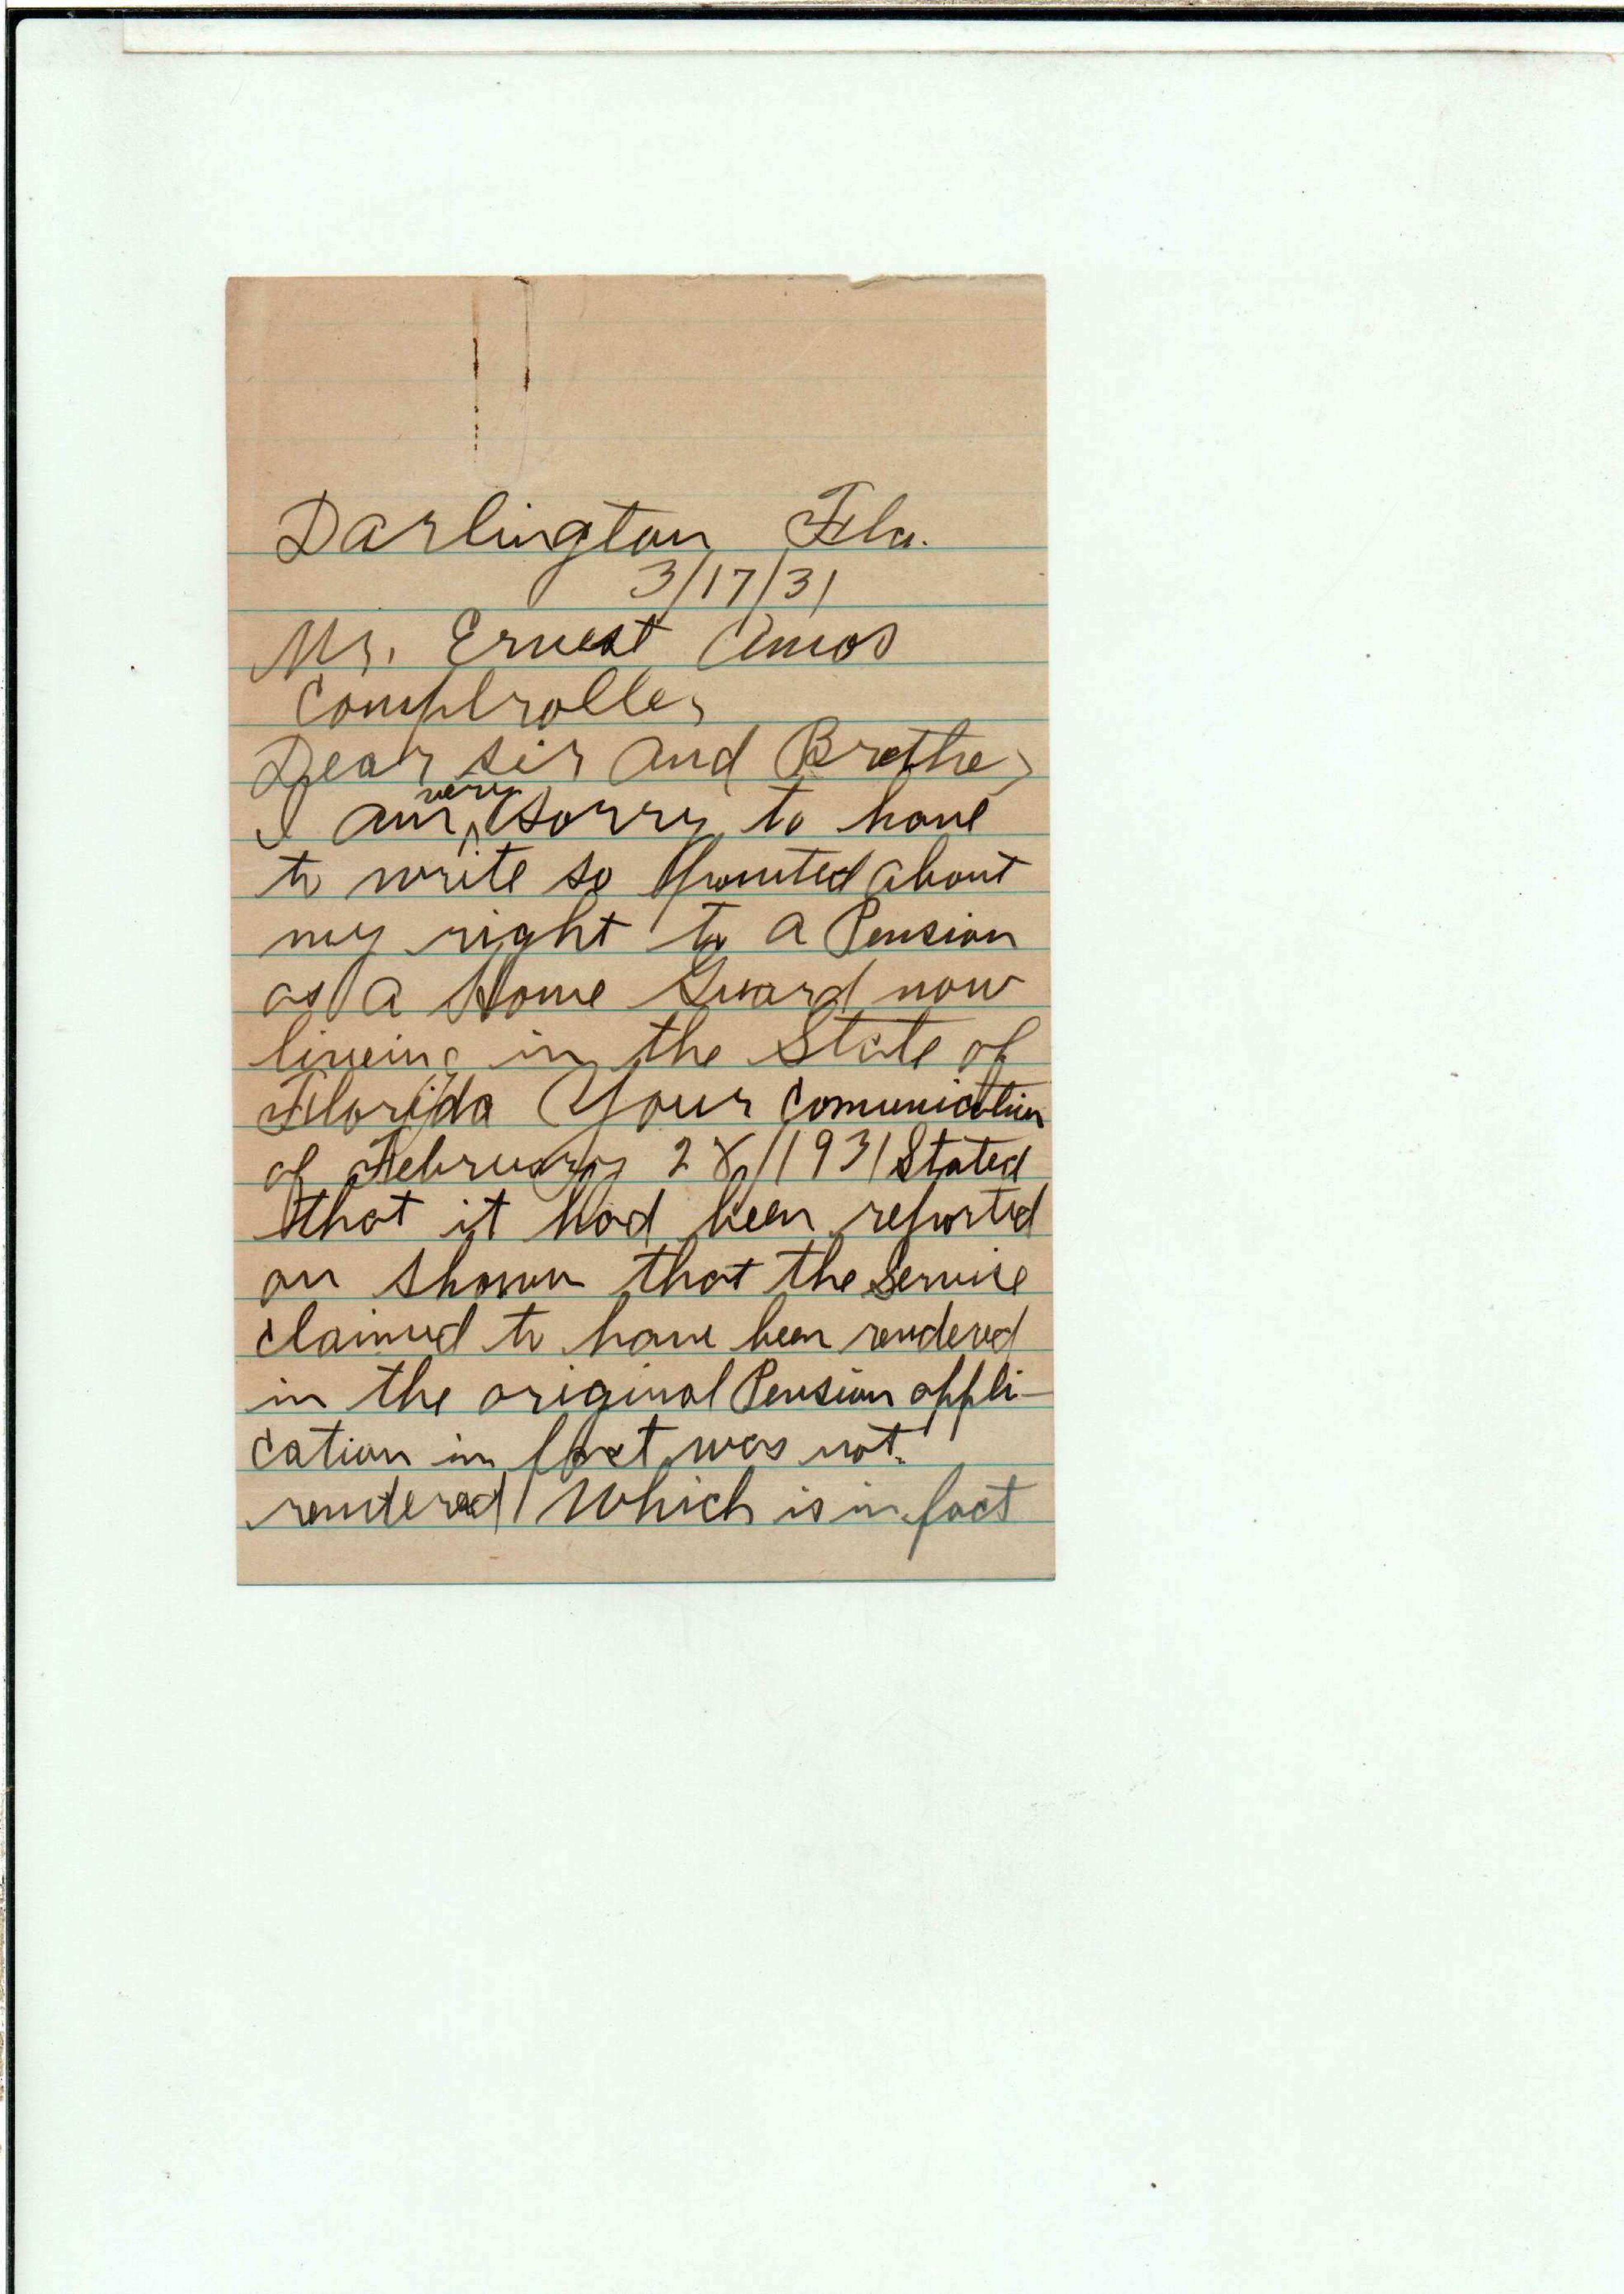 Darlington Fla.
3/17/31
Mr. Ernest Amos
Comptroller
Dear sir and Brother
I am very sorry to have
to write so Pointed about
my right to a Pension
as a Home Guard now
liveing in the State of
Florida Your comunication
of February 28/1931 Stated
that it had been reported
an shown that the Servise
claimed to have been rendered
in the original Pension appli-
cation in fact was not.
rendered Which is in fact